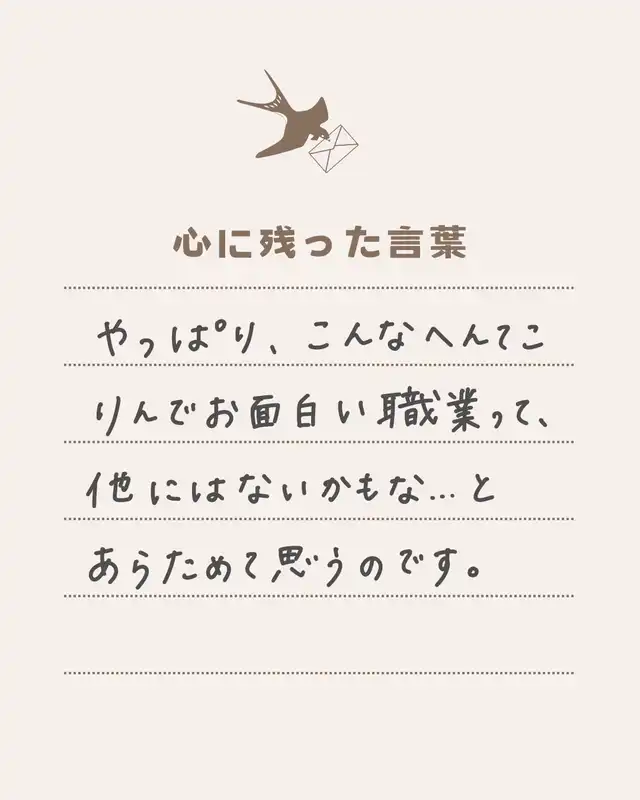 心に残った言葉
やっぱり、こんなへんてこ
りんでお面白い職業って、
他にはないかもな…と
あらためて思うのです。